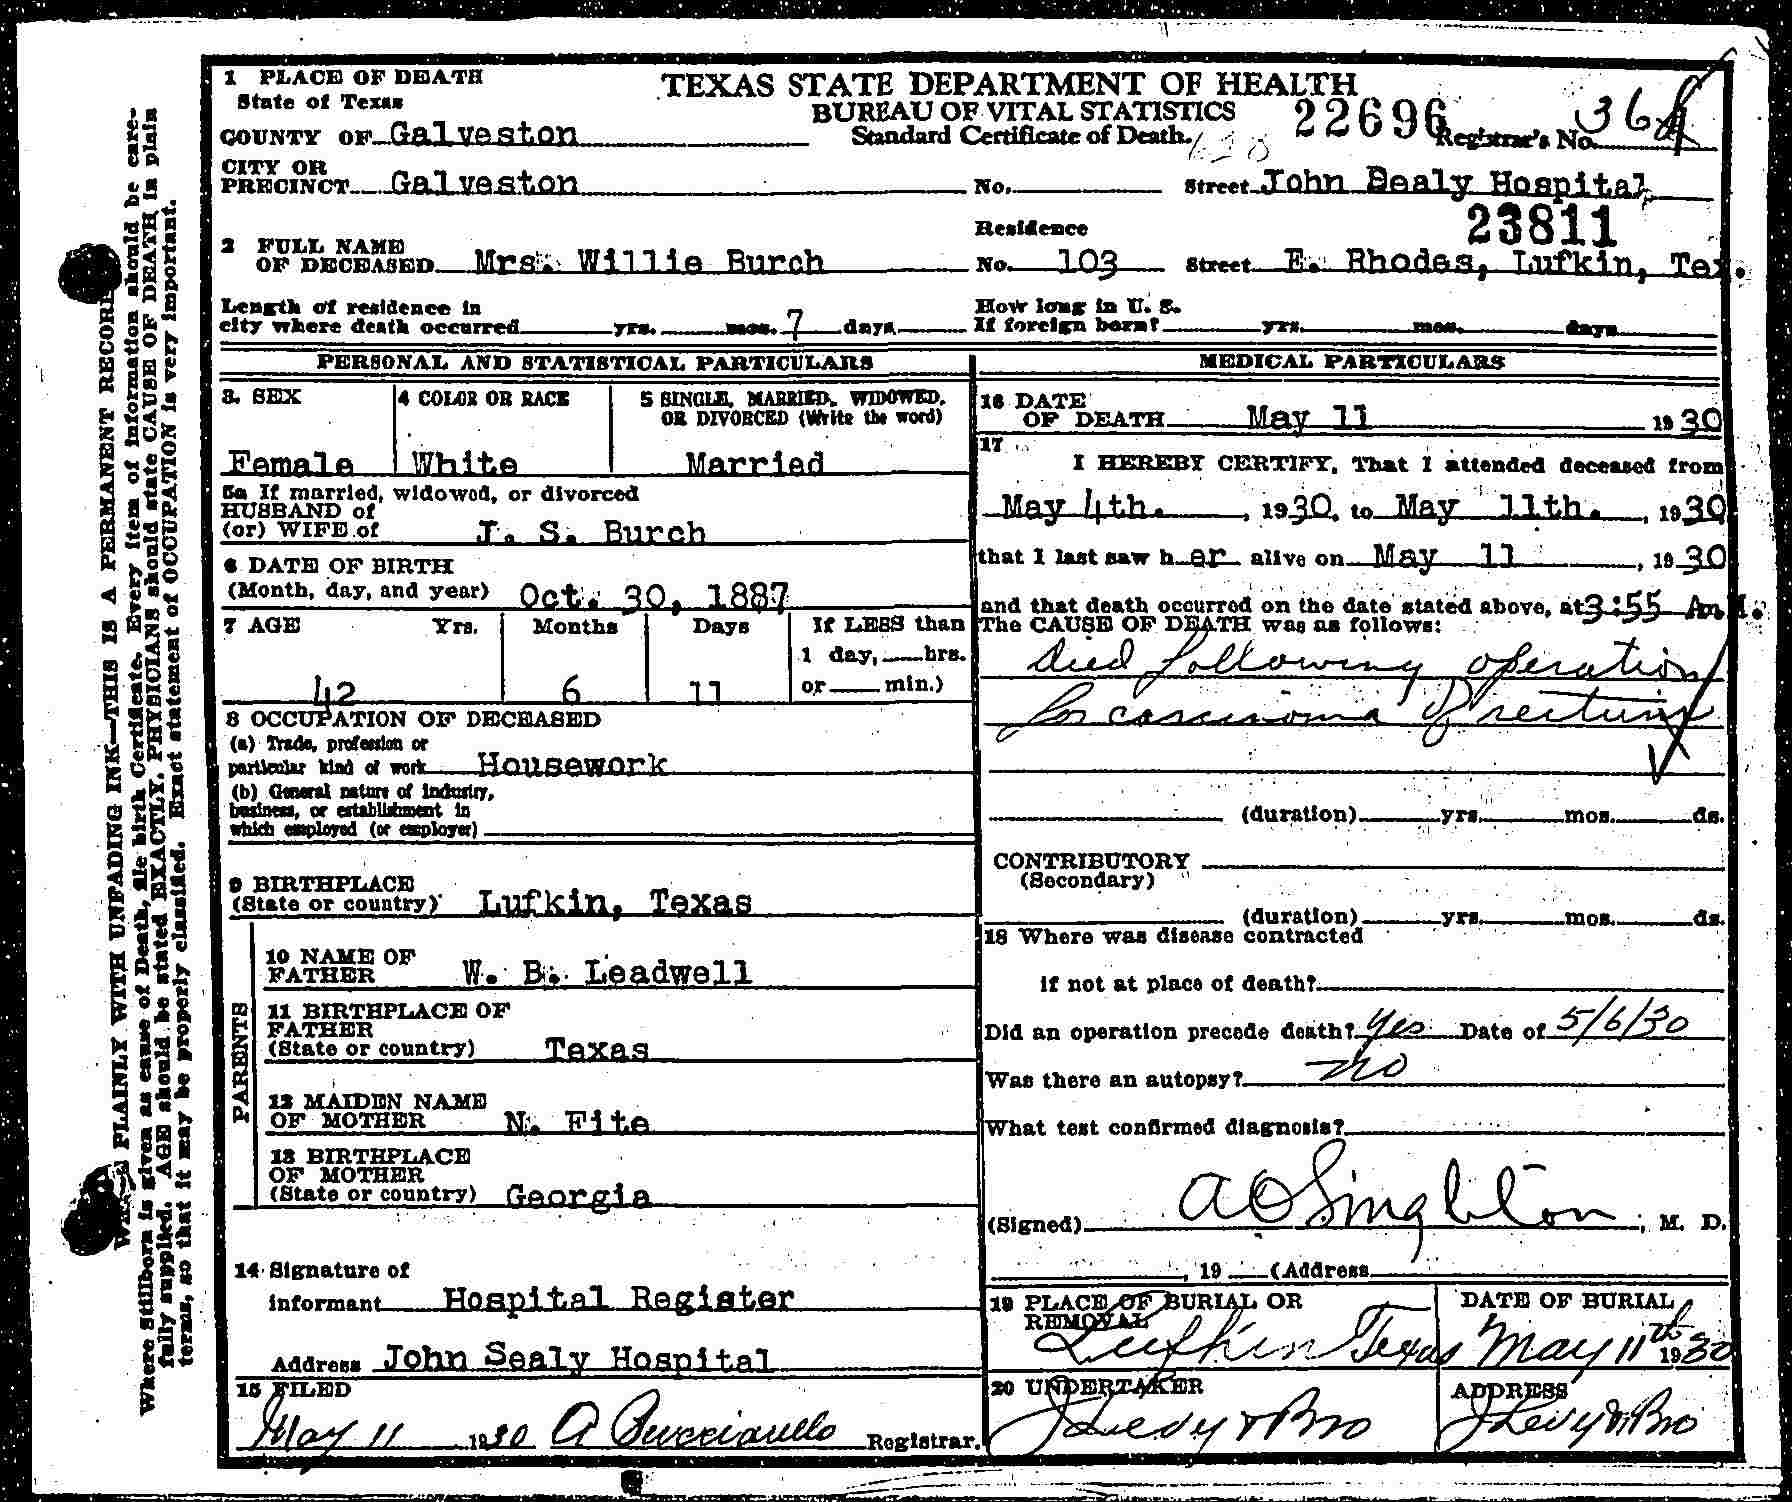 TEXAS STATE DEPARTMENT OF HEALTH
BUREAU OF VITAL STATISTICS
Standard Certificate of Death.
22696
Registrar's No. 36
1 PLACE OF DEATH
State of Texas
COUNTY OF Galveston
CITY OR
PRECINCT Galveston No. Street John Sealy Hospital
23811
Residence
2 FULL NAME
OF DECEASED Mrs. Willie Burch No. 103 Street E. Rhodes, Lufkin, Tex.
Length of residence in
city where death occurred yrs. mos. 7 days
How long in U. S.
If foreign born? yrs. mos. days
PERSONAL AND STATISTICAL PARTICULARS
3. SEX
Female
4 COLOR OR RACE
White
5 SINGLE, MARRIED, WIDOWED,
OR DIVORCED (Write the word)
Married
5a If married, widowed, or divorced
HUSBAND of
(or) WIFE of J. S. Burch
6 DATE OF BIRTH
(Month, day, and year) Oct. 30, 1887
7 AGE Yrs. Months Days If LESS than
1 day, hrs.
42 6 11 or min.)
8 OCCUPATION OF DECEASED
(a) Trade, profession or
particular kind of work Housework
(b) General nature of industry,
business, or establishment in
which employed (or employer)
9 BIRTHPLACE
(State or country) Lufkin, Texas
PARENTS
10 NAME OF
FATHER W. B. Leadwell
11 BIRTHPLACE OF
FATHER
(State or country) Texas
12 MAIDEN NAME
OF MOTHER N. Fite
13 BIRTHPLACE
OF MOTHER
(State or country) Georgia
14 Signature of
informant Hospital Register
Address John Sealy Hospital
15 FILED
May 11 1930 A Pucciarello Registrar.
MEDICAL PARTICULARS
16 DATE
OF DEATH May 11 1930
17
I HEREBY CERTIFY, That I attended deceased from
May 4th. , 1930, to May 11th. , 1930
that I last saw her alive on May 11 , 1930
and that death occurred on the date stated above, at 3:55 A.M.
The CAUSE OF DEATH was as follows:
Died following operation
for carcinoma of rectum
(duration) yrs. mos. ds.
CONTRIBUTORY
(Secondary)
(duration) yrs. mos. ds.
18 Where was disease contracted
if not at place of death?
Did an operation precede death? Yes Date of 5/6/30
Was there an autopsy? no
What test confirmed diagnosis?
(Signed) A O Singleton, M. D.
, 19 (Address
19 PLACE OF BURIAL OR
REMOVAL
Lufkin Texas
DATE OF BURIAL
May 11th 1930
20 UNDERTAKER
J Levy & Bro
ADDRESS
J Levy & Bro
PLAINLY WITH UNFADING INK—THIS IS A PERMANENT RECORD
Where Stillborn is given as cause of Death, file birth Certificate. Every item of information should be care-
fully supplied. AGE should be stated EXACTLY. PHYSICIANS should state CAUSE OF DEATH in plain
terms, so that it may be properly classified. Exact statement of OCCUPATION is very important.